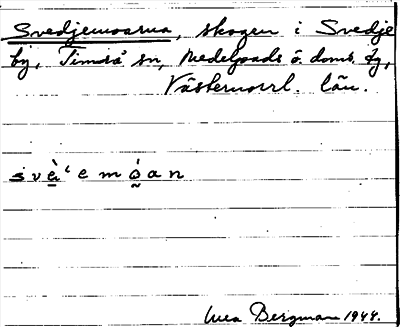 Svedjemoarna, skogen i Svedje
by, Timrå sn, Medelpads ö. doms. tg,
Västernorrl. län.
svè̱ˈemó̰an
Bergman 1944.